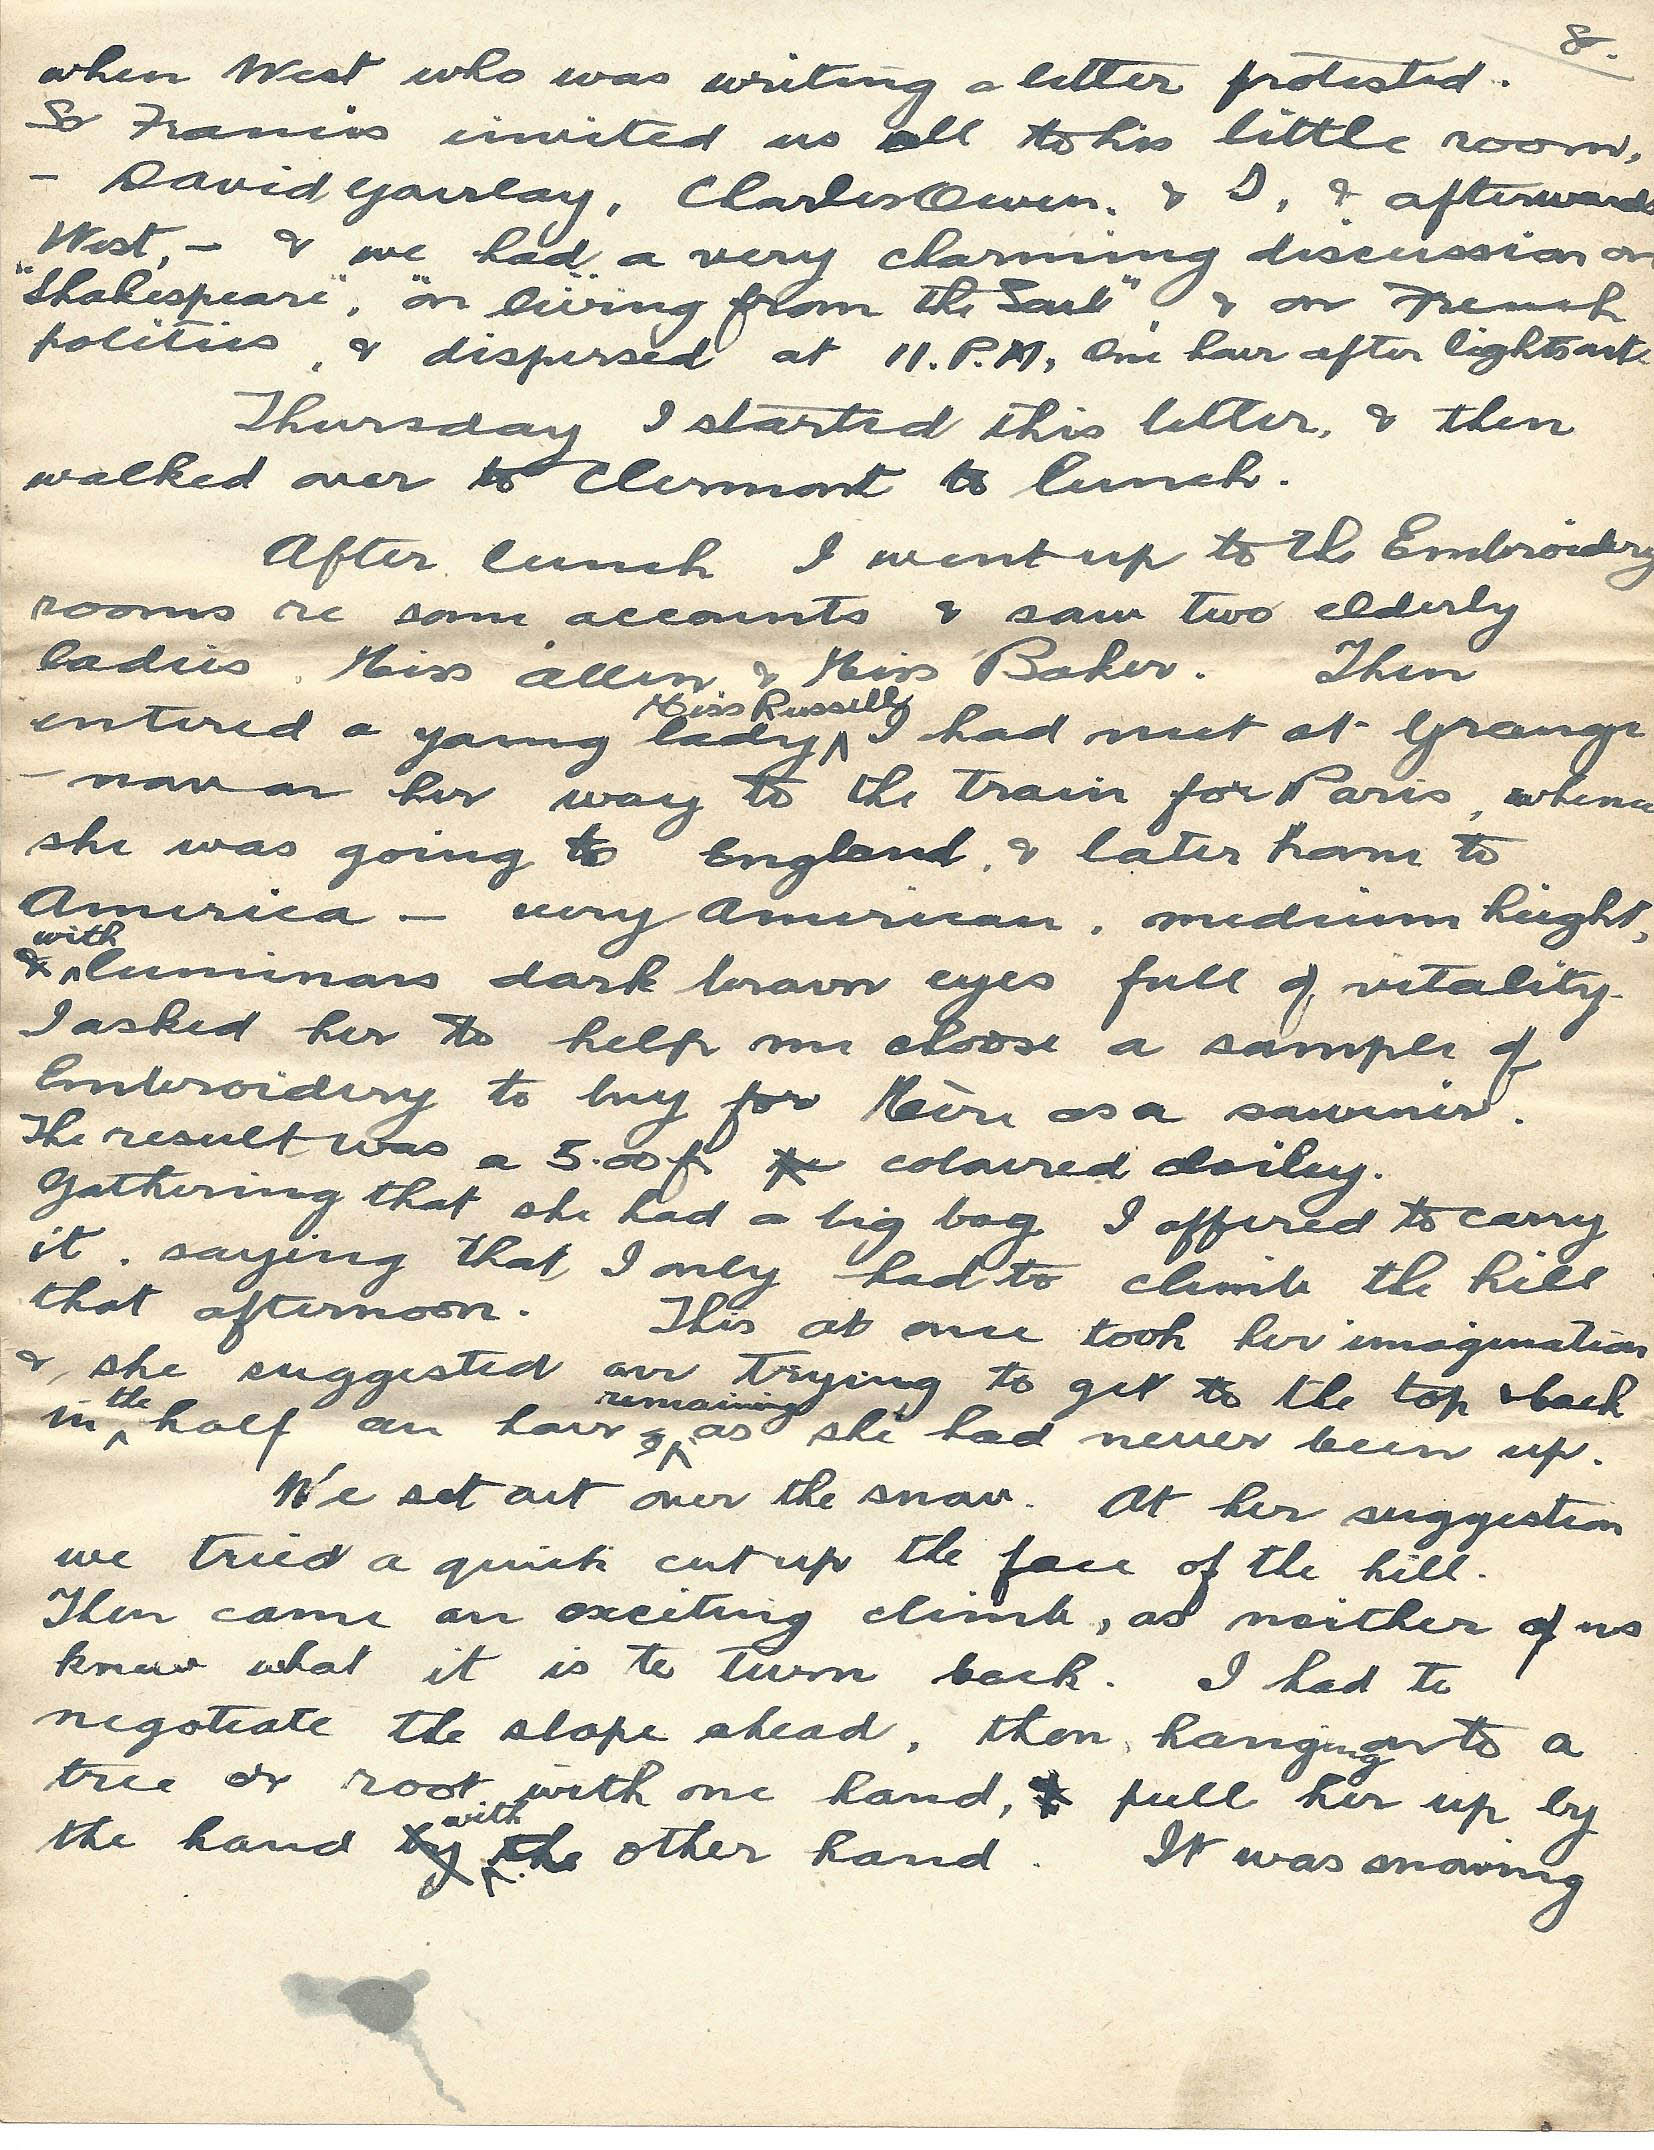 8.
when West who was writing a letter protested.
So Francis invited us all to his little room,
- David Gourlay, Charles Owen, & I, & afterwards
West, - & we had a very charming discussion on
"Shakespeare", "on living from the Soul" & on French
politics, & dispersed at 11.P.M, one hour after lights out
Thursday I started this letter, & then
walked over to Clermont to lunch.
After lunch I went up to the Embroidery
rooms re some accounts & saw two elderly
ladies, Miss Allen & Miss Baker. Then
entered a young lady Miss Russell, I had met at Grange
- now on her way to the train for Paris, whence
she was going to England, & later home to
America - very American, medium height,
& with luminous dark brown eyes full of vitality.
I asked her to help me choose a sample of
Embroidery to buy for Mère as a souvenir.
The result was a 5.00 fr coloured doiley.
Gathering that she had a big bag I offered to carry
it, saying that I only had to climb the hill
that afternoon. This at once took her imagination
& she suggested our trying to get to the top & back
in the half an hour remaining as she had never been up.
We set out over the snow. At her suggestion
we tried a quick cut up the face of the hill.
Then came an exciting climb, as neither of us
know what it is to turn back. I had to
negotiate the slope ahead, then, hanging on to a
tree or root with one hand, & pull her up by
the hand by with the other hand. It was snowing